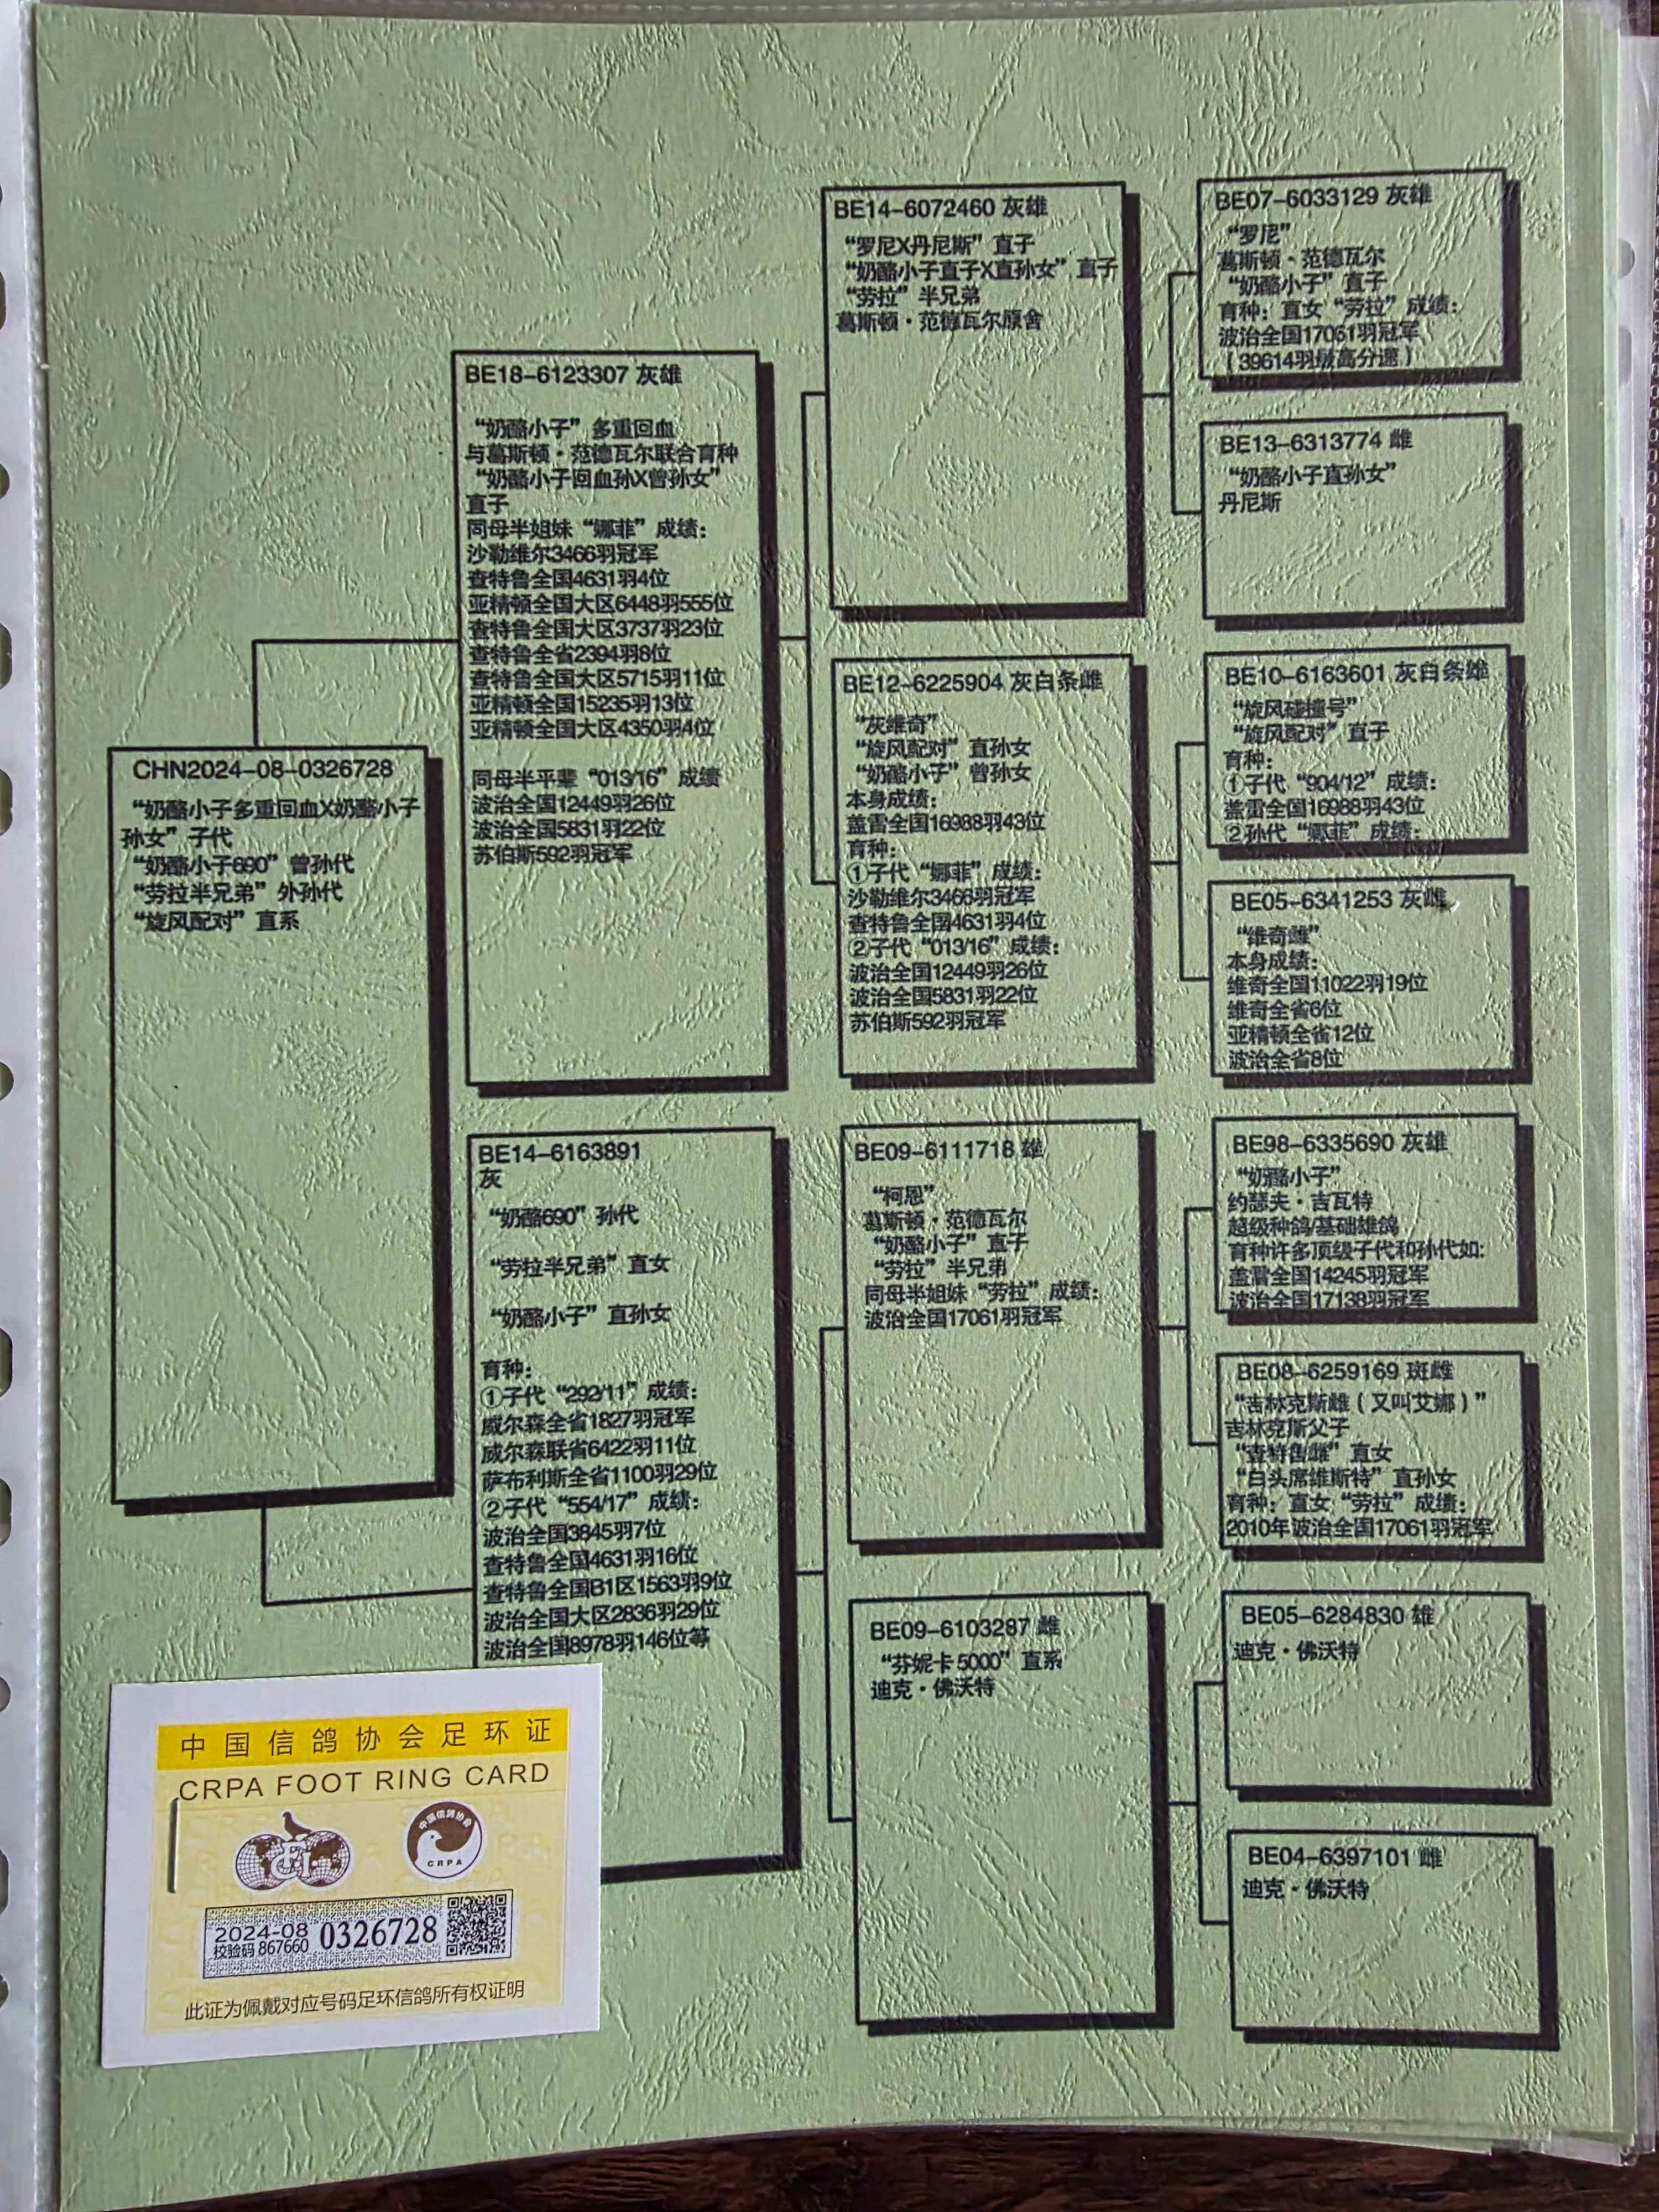 CHN2024-08-0326728
“奶酪小子多重回血X奶酪小子
孙女”子代
“奶酪小子690”曾孙代
“劳拉半兄弟”外孙代
“旋风配对”直系
BE18-6123307 灰雄
“奶酪小子”多重回血
与葛斯顿·范德瓦尔联合育种
“奶酪小子回血孙X曾孙女”
直子
同母半姐妹“娜菲”成绩：
沙勒维尔3466羽冠军
查特鲁全国4631羽4位
亚精顿全国大区6448羽555位
查特鲁全国大区3737羽23位
查特鲁全省2394羽8位
查特鲁全国大区5715羽11位
亚精顿全国15235羽13位
亚精顿全国大区4350羽4位
同母半平辈“013/16”成绩
波治全国12449羽26位
波治全国5831羽22位
苏伯斯592羽冠军
BE14-6163891
灰
“奶酪690”孙代
“劳拉半兄弟”直女
“奶酪小子”直孙女
育种：
①子代“292/11”成绩：
威尔森全省1827羽冠军
威尔森联省6422羽11位
萨布利斯全省1100羽29位
②子代“554/17”成绩：
波治全国3845羽7位
查特鲁全国4631羽16位
查特鲁全国B1区1563羽9位
波治全国大区2836羽29位
波治全国8978羽146位等
BE14-6072460 灰雄
“罗尼X丹尼斯”直子
“奶酪小子直子X直孙女”直子
“劳拉”半兄弟
葛斯顿·范德瓦尔原舍
BE12-6225904 灰白条雌
“灰维奇”
“旋风配对”直孙女
“奶酪小子”曾孙女
本身成绩：
盖雷全国16988羽43位
育种：
①子代“娜菲”成绩：
沙勒维尔3466羽冠军
查特鲁全国4631羽4位
②子代“013/16”成绩：
波治全国12449羽26位
波治全国5831羽22位
苏伯斯592羽冠军
BE09-6111718 雄
“柯恩”
葛斯顿·范德瓦尔
“奶酪小子”直子
“劳拉”半兄弟
同母半姐妹“劳拉”成绩：
波治全国17061羽冠军
BE09-6103287 雌
“芬妮卡5000”直系
迪克·佛沃特
BE07-6033129 灰雄
“罗尼”
葛斯顿·范德瓦尔
“奶酪小子”直子
育种：直女“劳拉”成绩：
波治全国17061羽冠军
（39614羽最高分速）
BE13-6313774 雌
“奶酪小子直孙女”
丹尼斯
BE10-6163601 灰白条雄
“旋风碰撞号”
“旋风配对”直子
育种：
①子代“904/12”成绩：
盖雷全国16988羽43位
②孙代“娜菲”成绩：
BE05-6341253 灰雌
“维奇雌”
本身成绩：
维奇全国11022羽19位
维奇全省6位
亚精顿全省12位
波治全省8位
BE98-6335690 灰雄
“奶酪小子”
约瑟夫·吉瓦特
超级种鸽/基础雄鸽
育种许多顶级子代和孙代如:
盖雷全国14245羽冠军
波治全国17138羽冠军
BE08-6259169 斑雌
“吉林克斯雌（又叫艾娜）”
吉林克斯父子
“查特鲁雌”直女
“白头席维斯特”直孙女
育种：直女“劳拉”成绩：
2010年波治全国17061羽冠军
BE05-6284830 雄
迪克·佛沃特
BE04-6397101 雌
迪克·佛沃特
中国信鸽协会足环证
CRPA FOOT RING CARD
FCI
中国信鸽协会
CRPA
2024-08
校验码 867660
0326728
此证为佩戴对应号码足环信鸽所有权证明